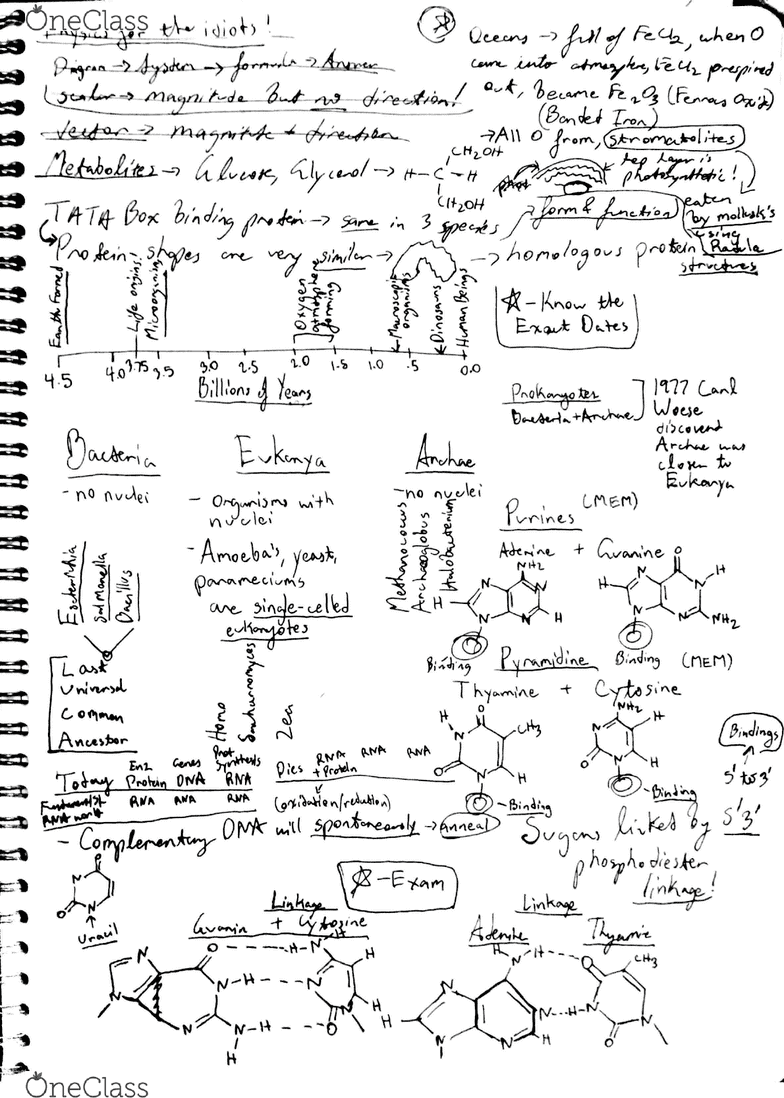 OneClass
Physics for the idiots!
Diagram → System → formula → Answer
scalar → magnitude but no direction!
vector → magnitude + direction
Metabolites → Glucose, Glycerol → H-C-H
CH2OH
CH2OH
TATA Box binding protein → same in 3 species
Protein shapes are very similar → → homologous protein structures
Oceans → full of FeCl2, when O
came into atmosphere, FeCl2
out, became Fe2O3 (Ferrous Oxide)
(Banded Iron)
→ All O from, stromatolites
top layer is
photosynthetic!
form & function
eaten
by mollusk's
using
Radula
Earth Formed
Life origins!
Microorganisms
Oxygen
atmosphere
forming
Macroscopic
organisms
Dinosaurs
Human Beings
4.5 4.0 3.75 3.5 3.0 2.5 2.0 1.5 1.0 .5 0.0
Billions of Years
☆-Know the
Exact Dates
Prokaryotes
Bacteria + Archae
1977 Carl
Woese
discovered
Archae was
closer to
Eukarya
Bacteria
- no nuclei
Escherichia
Salmonella
Bacillus
Last
Universal
Common
Ancestor
Eukarya
- Organisms with
nuclei
- Amoeba's, yeast,
parameciums
are single-celled
eukaryotes
Homo
Saccharomyces
Zea
Archae
- no nuclei
Methanococcus
Archaeoglobus
Halobacterium
Purines (MEM)
Adenine + Guanine
NH2
N
N
N
N
H
H
Binding
O
N
N
N
N
H
H
NH2
Binding
Pyramidine (MEM)
Thyamine + Cytosine
O
H
N
CH3
O
N
H
Binding
NH2
N
H
O
N
H
Binding
Bindings
5' to 3'
Enz Genes Prot Synthesis
Today Protein DNA RNA
RNA world RNA RNA RNA
Dies RNA + Protein RNA RNA
(oxidation/reduction)
- Complementary DNA will spontaneously → Anneal
Sugars linked by 5'3'
phosphodiester
linkage!
O
N
O
N
Uracil
☆-Exam
Linkage
Guanin + Cytosine
O --- H-N
H
H
N
N
N-H --- N
N
N-H --- O
H
N
H
Linkage
Adenine Thyamine
H
N-H --- O
CH3
N
N --- H-N
H
N
N
H
O
N
OneClass